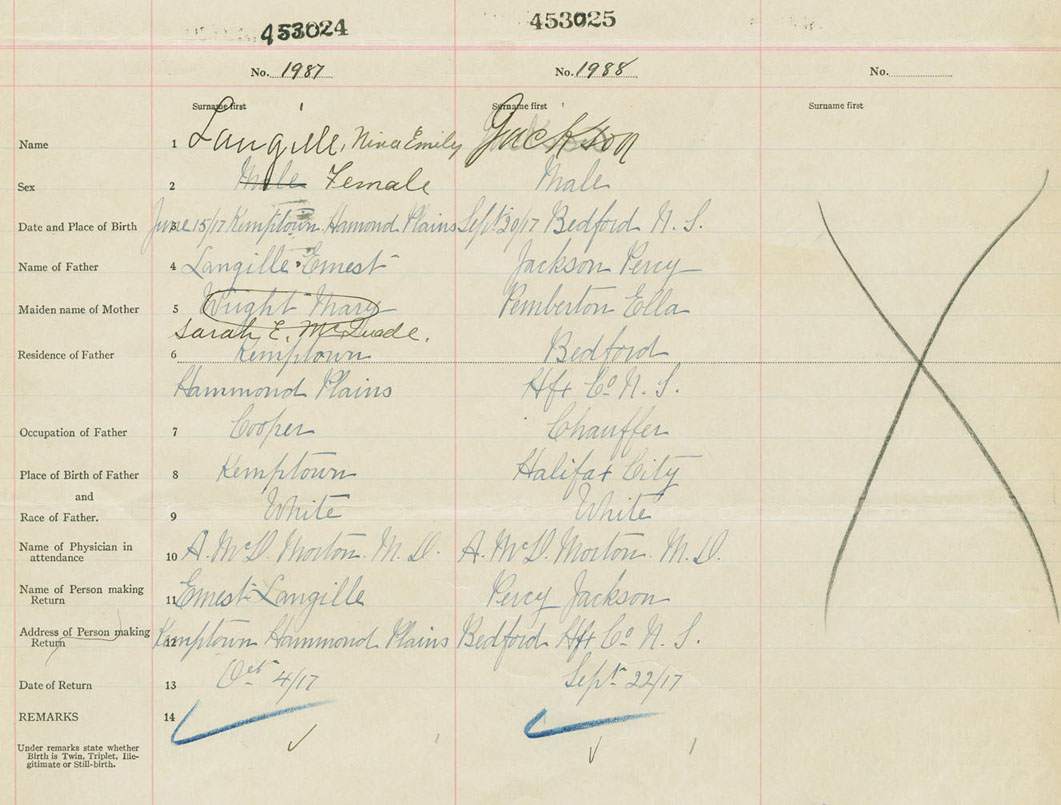 453024 453025
No. 1987 No. 1988 No.
Surname first Surname first Surname first
Name 1 Langille, Nina Emily Jackson
Sex 2 Male Female Male
Date and Place of Birth 3 June 15/17 Kemptown Hamond Plains Sept 20/17 Bedford N. S.
Name of Father 4 Langille Ernest Jackson Percy
Maiden name of Mother 5 Wright Mary Pemberton Ella
Sarah E. McQuade.
Residence of Father 6 Kemptown Bedford
Hammond Plains Hfx Co N. S.
Occupation of Father 7 Cooper Chauffer
Place of Birth of Father 8 Kemptown Halifax City
and
Race of Father. 9 White White
Name of Physician in
attendance 10 A. McD. Morton. M. D. A. McD. Morton. M. D.
Name of Person making
Return 11 Ernest Langille Percy Jackson
Address of Person making
Return 12 Kemptown Hammond Plains Bedford Hfx Co N. S.
Date of Return 13 Oct 4/17 Sept 22/17
REMARKS 14
Under remarks state whether
Birth is Twin, Triplet, Ille-
gitimate or Still-birth.